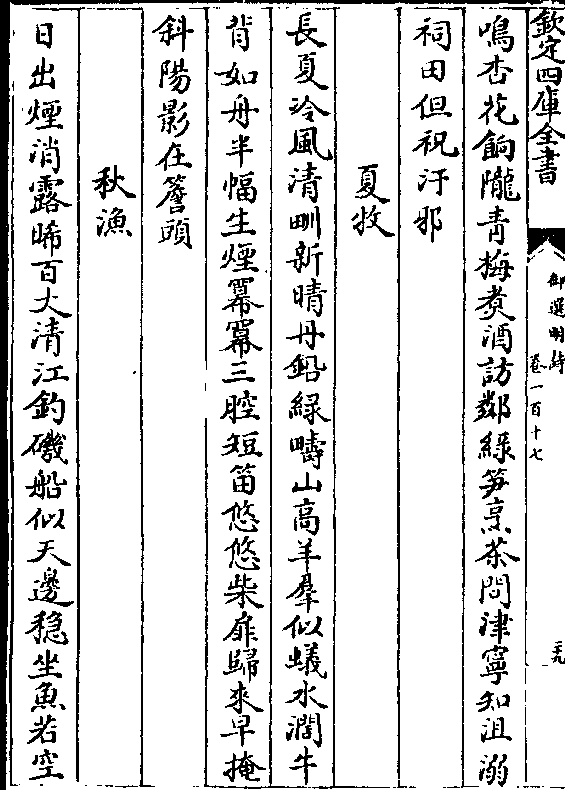 欽定四庫全書
御選明詩
卷一百十七
二十九
鳴杏花餉隴青梅煮酒訪鄰綠笋烹茶問津寧知沮溺
祠田但祝汙邪
夏牧
長夏泠風清甽新晴丹鉛綠疇山高羊羣似蟻水濶牛
背如舟半幅生煙羃羃三腔短笛悠悠柴扉歸來早掩
斜陽影在簷頭
秋漁
日出煙消露晞百丈清江釣磯船似天邊穏坐魚若空